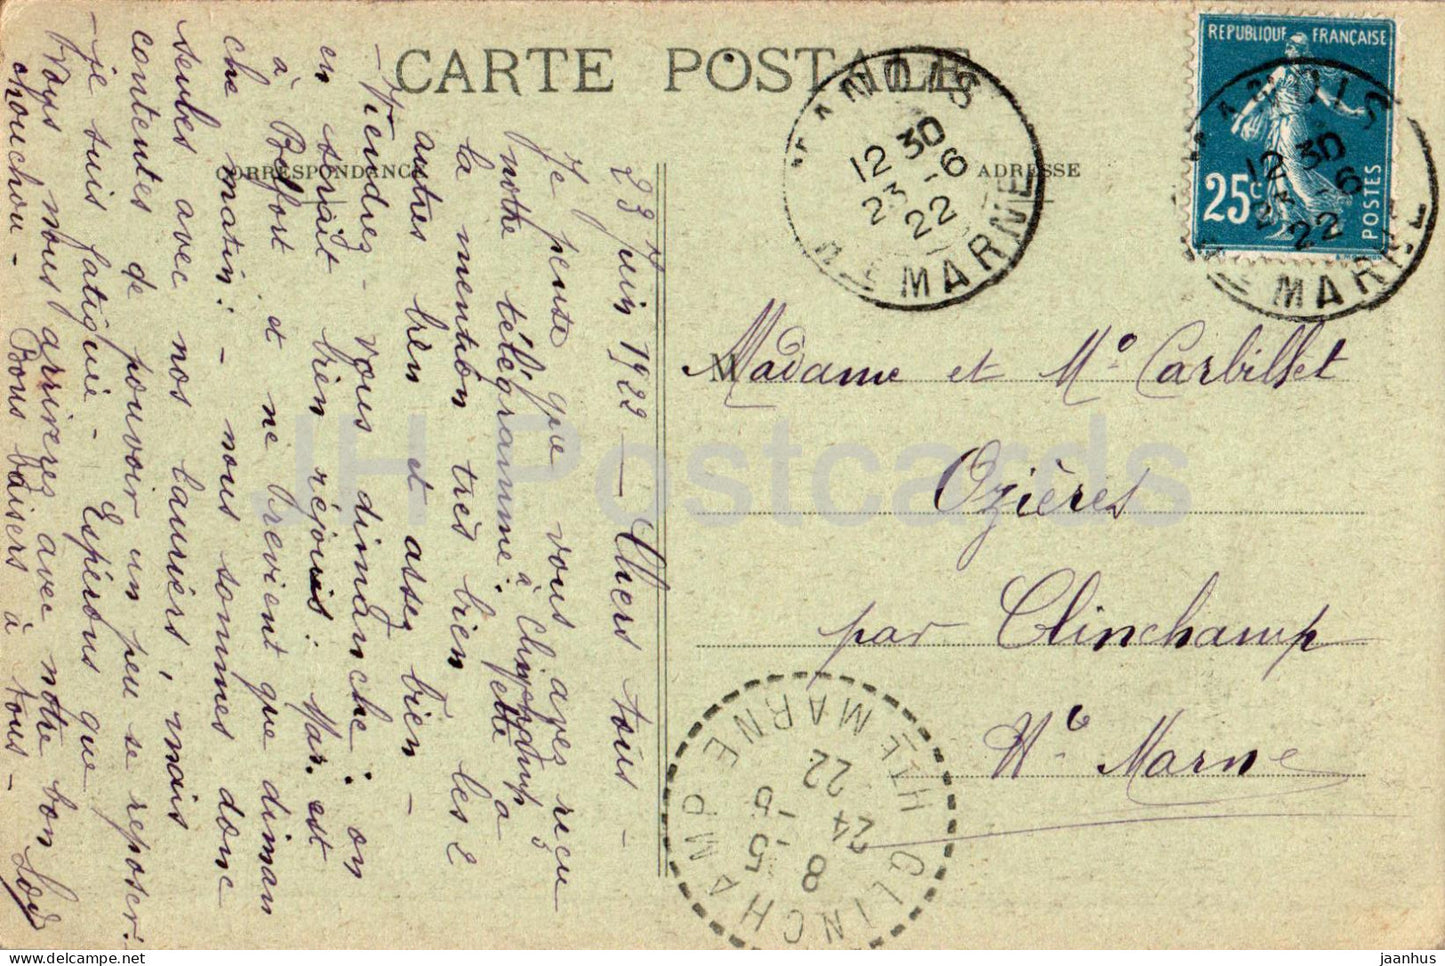 CARTE POSTALE
CORRESPONDANCE
ADRESSE
REPUBLIQUE FRANÇAISE
25c
POSTES
12 30
23 -6
22
MARNE
12 30
23 -6
22
MARNE
Madame et Me Carbillet
Ozières
par Clinchamp
Hte Marne
CLINCHAMP HTE MARNE
8
24
22
23 Juin 1922 — Chers tous -
Je pense que vous avez reçu
notre télégramme. Jette a
à Clinchamp
la mention très bien les 2
autres bien et assez bien -
Viendrez-vous dimanche : on
en serait bien réjouis. Mar. est
à Belfort et ne brevient que diman
che matin. - nous sommes donc
seules avec nos lauriers, mais
contentes de pouvoir un peu se reposer.
- je suis fatiguée - Espérons que
Vous nous arriverez avec notre bon
chouchou - Bons baisers à tous -
JH Postcards
jaanhus